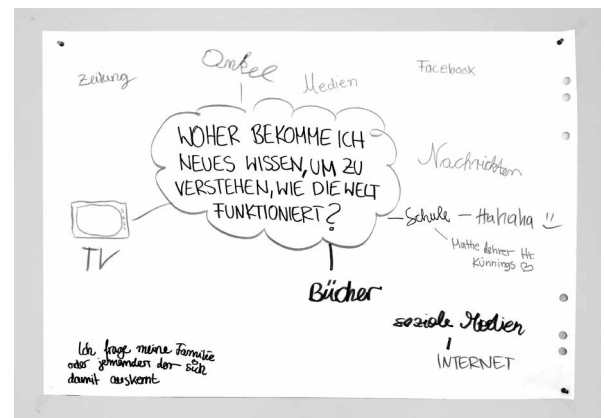 Zeitung
Onkel
Medien
Facebook
WOHER BEKOMME ICH
NEUES WISSEN, UM ZU
VERSTEHEN, WIE DIE WELT
FUNKTIONIERT?
Nachrichten
Schule - Hahaha !!
Mathe Lehrer Hr.
Künnings
TV
Bücher
soziale Medien
INTERNET
Ich frage meine Familie
oder jemanden der sich
damit auskennt